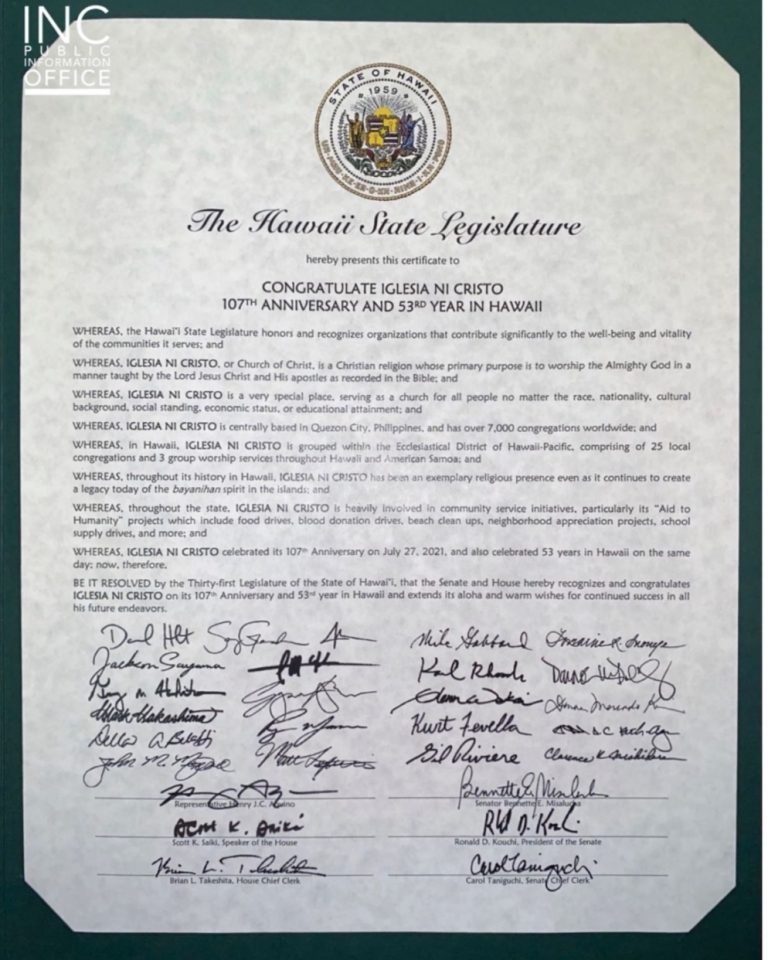 INC
PUBLIC
INFORMATION
OFFICE
STATE OF HAWAII
1959
The Hawaii State Legislature
hereby presents this certificate to
CONGRATULATE IGLESIA NI CRISTO
107TH ANNIVERSARY AND 53RD YEAR IN HAWAII
WHEREAS, the Hawai'i State Legislature honors and recognizes organizations that contribute significantly to the well-being and vitality
of the communities it serves; and
WHEREAS, IGLESIA NI CRISTO, or Church of Christ, is a Christian religion whose primary purpose is to worship the Almighty God in a
manner taught by the Lord Jesus Christ and His apostles as recorded in the Bible; and
WHEREAS, IGLESIA NI CRISTO is a very special place, serving as a church for all people no matter the race, nationality, cultural
background, social standing, economic status, or educational attainment; and
WHEREAS, IGLESIA NI CRISTO is centrally based in Quezon City, Philippines, and has over 7,000 congregations worldwide; and
WHEREAS, in Hawaii, IGLESIA NI CRISTO is grouped within the Ecclesiastical District of Hawaii-Pacific, comprising of 25 local
congregations and 3 group worship services throughout Hawaii and American Samoa; and
WHEREAS, throughout its history in Hawaii, IGLESIA NI CRISTO has been an exemplary religious presence even as it continues to create
a legacy today of the bayanihan spirit in the islands; and
WHEREAS, throughout the state, IGLESIA NI CRISTO is heavily involved in community service initiatives, particularly its "Aid to
Humanity" projects which include food drives, blood donation drives, beach clean ups, neighborhood appreciation projects, school
supply drives, and more; and
WHEREAS, IGLESIA NI CRISTO celebrated its 107th Anniversary on July 27, 2021, and also celebrated 53 years in Hawaii on the same
day; now, therefore,
BE IT RESOLVED by the Thirty-first Legislature of the State of Hawai'i, that the Senate and House hereby recognizes and congratulates
IGLESIA NI CRISTO on its 107th Anniversary and 53rd year in Hawaii and extends its aloha and warm wishes for continued success in all
his future endeavors.
Mike Gabbard
Kurt Fevella
Gil Riviere
Representative Henry J.C. Aquino
Senator Bennette E. Misalucha
Scott K. Saiki, Speaker of the House
Ronald D. Kouchi, President of the Senate
Brian L. Takeshita, House Chief Clerk
Carol Taniguchi
Carol Taniguchi, Senate Chief Clerk